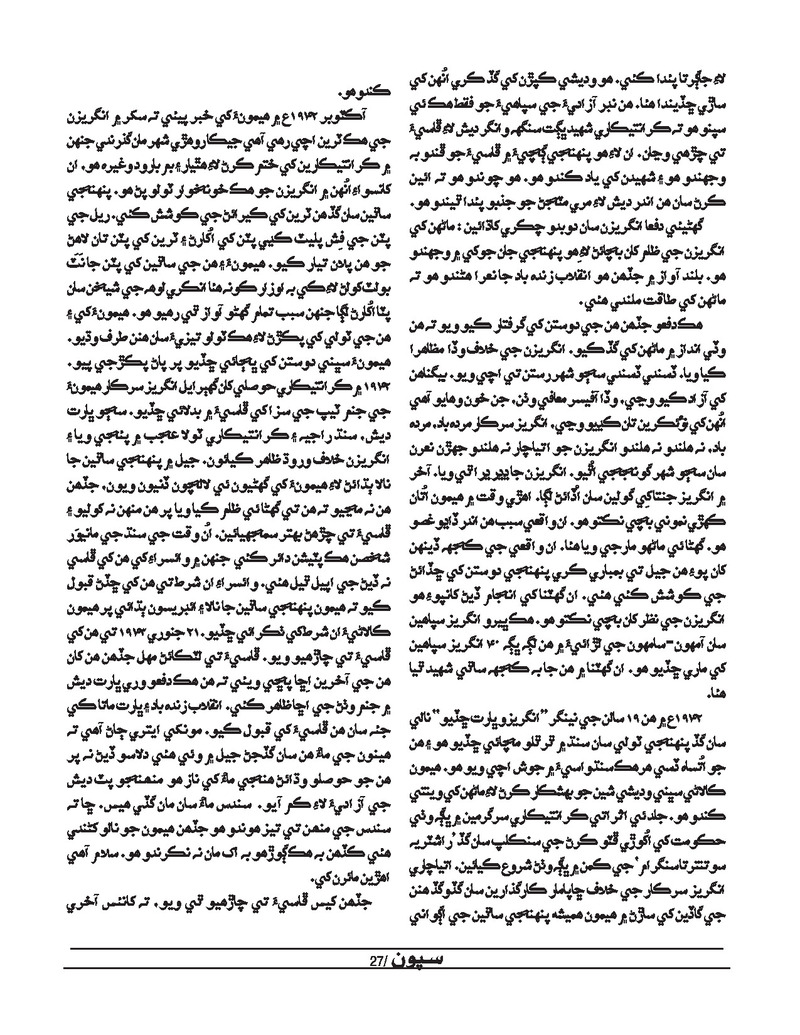 لاءِ جاڳرتا پئدا ڪئي. هو وديشي ڪپڙن کي گڏ ڪري اُنهن کي
ساڙي ڇڏيندا هئا. هن نينر آزاديءَ جي سپاهيءَ جو فقط هڪ ئي
سپنو هو ته ڪرانتيڪاري شهيد ڀڳت سنگهه وانگر ديش لاءِ ڦاسيءَ
تي چڙهي وڃان. ان لاءِ هو پنهنجي ڳچيءَ ۾ ڦاسيءَ جو ڦندو به
وجهندو هو ۽ شهيدن کي ياد ڪندو هو. هو چوندو هو ته ائين
ڪرڻ سان هن اندر ديش لاءِ مري مٽجڻ جو جذبو پئدا ٿيندو هو.
گهڻيئي دفعا انگريزن سان دوبدو چڪري کاڌائين: ماڻهن کي
انگريزن جي ظلم کان بچائڻ لاءِ هو پنهنجي جان جوکي ۾ وجهندو
هو. بلند آواز ۾ جڏهن هو انقلاب زنده باد جا نعرا هڻندو هو ته
ماڻهن کي طاقت ملندي هئي.
هڪ دفعو جڏهن هن جي دوستن کي گرفتار ڪيو ويو ته هن
وڏي انداز ۾ ماڻهن کي گڏ ڪيو. انگريزن جي خلاف وڏا مظاهرا
ڪيا ويا. ڏسندي ڏسندي سڄو شهر رستن تي اچي ويو. بيگناهن
کي آزاد ڪيو وڃي، وڏا آفيسر معافي وٺن، جن خون وهايو آهي
اُنهن کي نوڪرين تان ڪڍيو وڃي، انگريز سرڪار مرده باد، مرده
باد، نه هلندو نه هلندو انگريزن جو اتياچار نه هلندو جهڙن نعرن
سان سڄو شهر گونججي اُٿيو. انگريزن جا ڍڍر ڍرا ٿي ويا. آخر
۾ انگريز جنتا کي گولين سان اُڏائڻ لڳا. اهڙي وقت ۾ هيمون اُتان
ڪهڙي نموني بچي نڪتو هو. ان واقعي سبب هن اندر ڏاڍو غصو
هو. گهڻائي ماڻهو مارجي ويا هئا. ان واقعي جي ڪجهه ڏينهن
کان پوءِ هن جيل تي بمباري ڪري پنهنجي دوستن کي ڇڏائڻ
جي ڪوشش ڪئي هئي. ان گهٽنا کي انجام ڏيڻ کانپوءِ هو
انگريزن جي نظر کان بچي نڪتو هو. هڪ ڀيرو انگريز سپاهين
سان آمهون-سامهون جي لڙائيءَ ۾ هن لڳ ڀڳ ۴۰ انگريز سپاهين
کي ماري ڇڏيو هو. ان گهٽنا ۾ هن جا به ڪجهه ساٿي شهيد ٿيا
هئا.
۱۹۴۲ع ۾ هن ۱۹ سالن جي نينگر ”انگريزو ڀارت ڇڏيو“ نالي
سان گڏ پنهنجي ٽولي سان سنڌ ۾ ٿرٿلو مچائي ڇڏيو هو ۽ هن
جو اُتساهه ڏسي هر هڪ سنڌو اسيءَ ۾ جوش اچي ويو هو. هيمون
ڪالاڻي سڀني وديشي شين جو بهشڪار ڪرڻ لاءِ ماڻهن کي وينتي
ڪندو هو. جلد ئي اثر اتي ڪرانتيڪاري سرگرمين ۾ ڀڳ وٺي
حڪومت کي اُکوڙي ڦٽو ڪرڻ جي سنڪلپ سان گڏ ’راشٽريه
سوتنترتا سنگرام‘ جي ڪمن ۾ ڀڳ وٺڻ شروع ڪيائين. اتياچاري
انگريز سرڪار جي خلاف ڇاپامار ڪارگذارين سان گڏوگڏ هنن
جي گاڏين کي ساڙڻ ۾ هيمون هميشه پنهنجي ساٿين جي اڳواڻي
ڪندو هو.
آڪٽوبر ۱۹۴۲ع ۾ هيمونءَ کي خبر پيئي ته سکر ۾ انگريزن
جي هڪ ٽرين اچي رهي آهي جيڪا روهڙي شهر مان گذرندي جنهن
۾ ڪرانتيڪارين کي ختم ڪرڻ لاءِ هٿيار ۽ بم بارود وغيره هو. ان
کانسواءِ اُنهن ۾ انگريزن جو هڪ خونخوار ٽولو پڻ هو. پنهنجي
ساٿين سان گڏ هن ٽرين کي ڪيرائڻ جي ڪوشش ڪئي. ريل جي
پٽن جي فِش پليٽ ڪڍي پٽن کي اُکارڻ ۽ ٽرين کي پٽن تان لاهڻ
جو هن پلان تيار ڪيو. هيمونءَ ۽ هن جي ساٿين کي پٽن جا نَٽ
بولٽ کولڻ لاءِ ڪي به اوزار ڪونه هئا انڪري لوهه جي شيخن سان
پٽا اُکارڻ لڳا جنهن سبب تمام گهڻو آواز ٿي رهيو هو. هيمونءَ کي ۽
هن جي ٽولي کي پڪڙڻ لاءِ هڪ ٽولو تيزيءَ سان هنن طرف وڌيو.
هيمونءَ سڀني دوستن کي ڀڄائي ڇڏيو پر پاڻ پڪڙجي پيو.
۱۹۴۲ ۾ ڪرانتيڪاري حوصلي کان گهٻرايل انگريز سرڪار هيمونءَ
جي جنم ٽيپ جي سزا کي ڦاسيءَ ۾ بدلائي ڇڏيو. سڄو ڀارت
ديش، سنڌ راجيه ۽ ڪرانتيڪاري ٽولا عجب ۾ پئجي ويا ۽
انگريزن خلاف وروڌ ظاهر ڪيائون. جيل ۾ پنهنجي ساٿين جا
نالا ٻڌائڻ لاءِ هيمونءَ کي گهڻيون ئي لالچون ڏنيون ويون، جڏهن
هن نه مڃيو ته هن تي گهڻائي ظلم ڪيا ويا پر هن منهن نه کوليو ۽
ڦاسيءَ تي چڙهڻ بهتر سمجهيائين. اُن وقت جي سنڌ جي مانيوَر
شخصن هڪ پٽيشن دائر ڪئي جنهن ۾ وائسراءِ کي هن کي ڦاسي
نه ڏيڻ جي اپيل ٿيل هئي. وائسراءِ ان شرط تي هن کي ڇڏڻ قبول
ڪيو ته هيمون پنهنجي ساٿين جا نالا ۽ ائڊريسون ٻڌائي پر هيمون
ڪالاڻيءَ ان شرط کي ٺڪرائي ڇڏيو. ۲۱ جنوري ۱۹۴۳ تي هن کي
ڦاسيءَ تي چاڙهيو ويو. ڦاسيءَ تي لٽڪائڻ مهل جڏهن هن کان
هن جي آخرين اڇا پڇي ويئي ته هن هڪ دفعو وري ڀارت ديش
۾ جنم وٺڻ جي اڇا ظاهر ڪئي. انقلاب زنده باد ۽ ڀارت ماتا کي
جئه سان هن ڦاسيءَ کي قبول ڪيو. مونکي ايتري ڄاڻ آهي ته
هيمون جي ماءُ هن سان گڏجڻ جيل ۾ وئي هئي دلاسو ڏيڻ نه پر
هن جو حوصلو وڌائڻ هنجي ماءُ کي ناز هو منهنجو پٽ ديش
جي آزاديءَ لاءِ ڪم آيو. سندس ماءُ سان مان گڏي هيس. ڇا ته
سندس جي منهن تي تيز هوندو هو جڏهن هيمون جو نالو کڻندي
هئي ڪڏهن به هڪ ڳوڙهو به اک مان نه نڪرندو هو. سلام آهي
اهڙين مائرن کي.
جڏهن ڪيس ڦاسيءَ تي چاڙهيو ٿي ويو، ته کانئس آخري
سپون /27